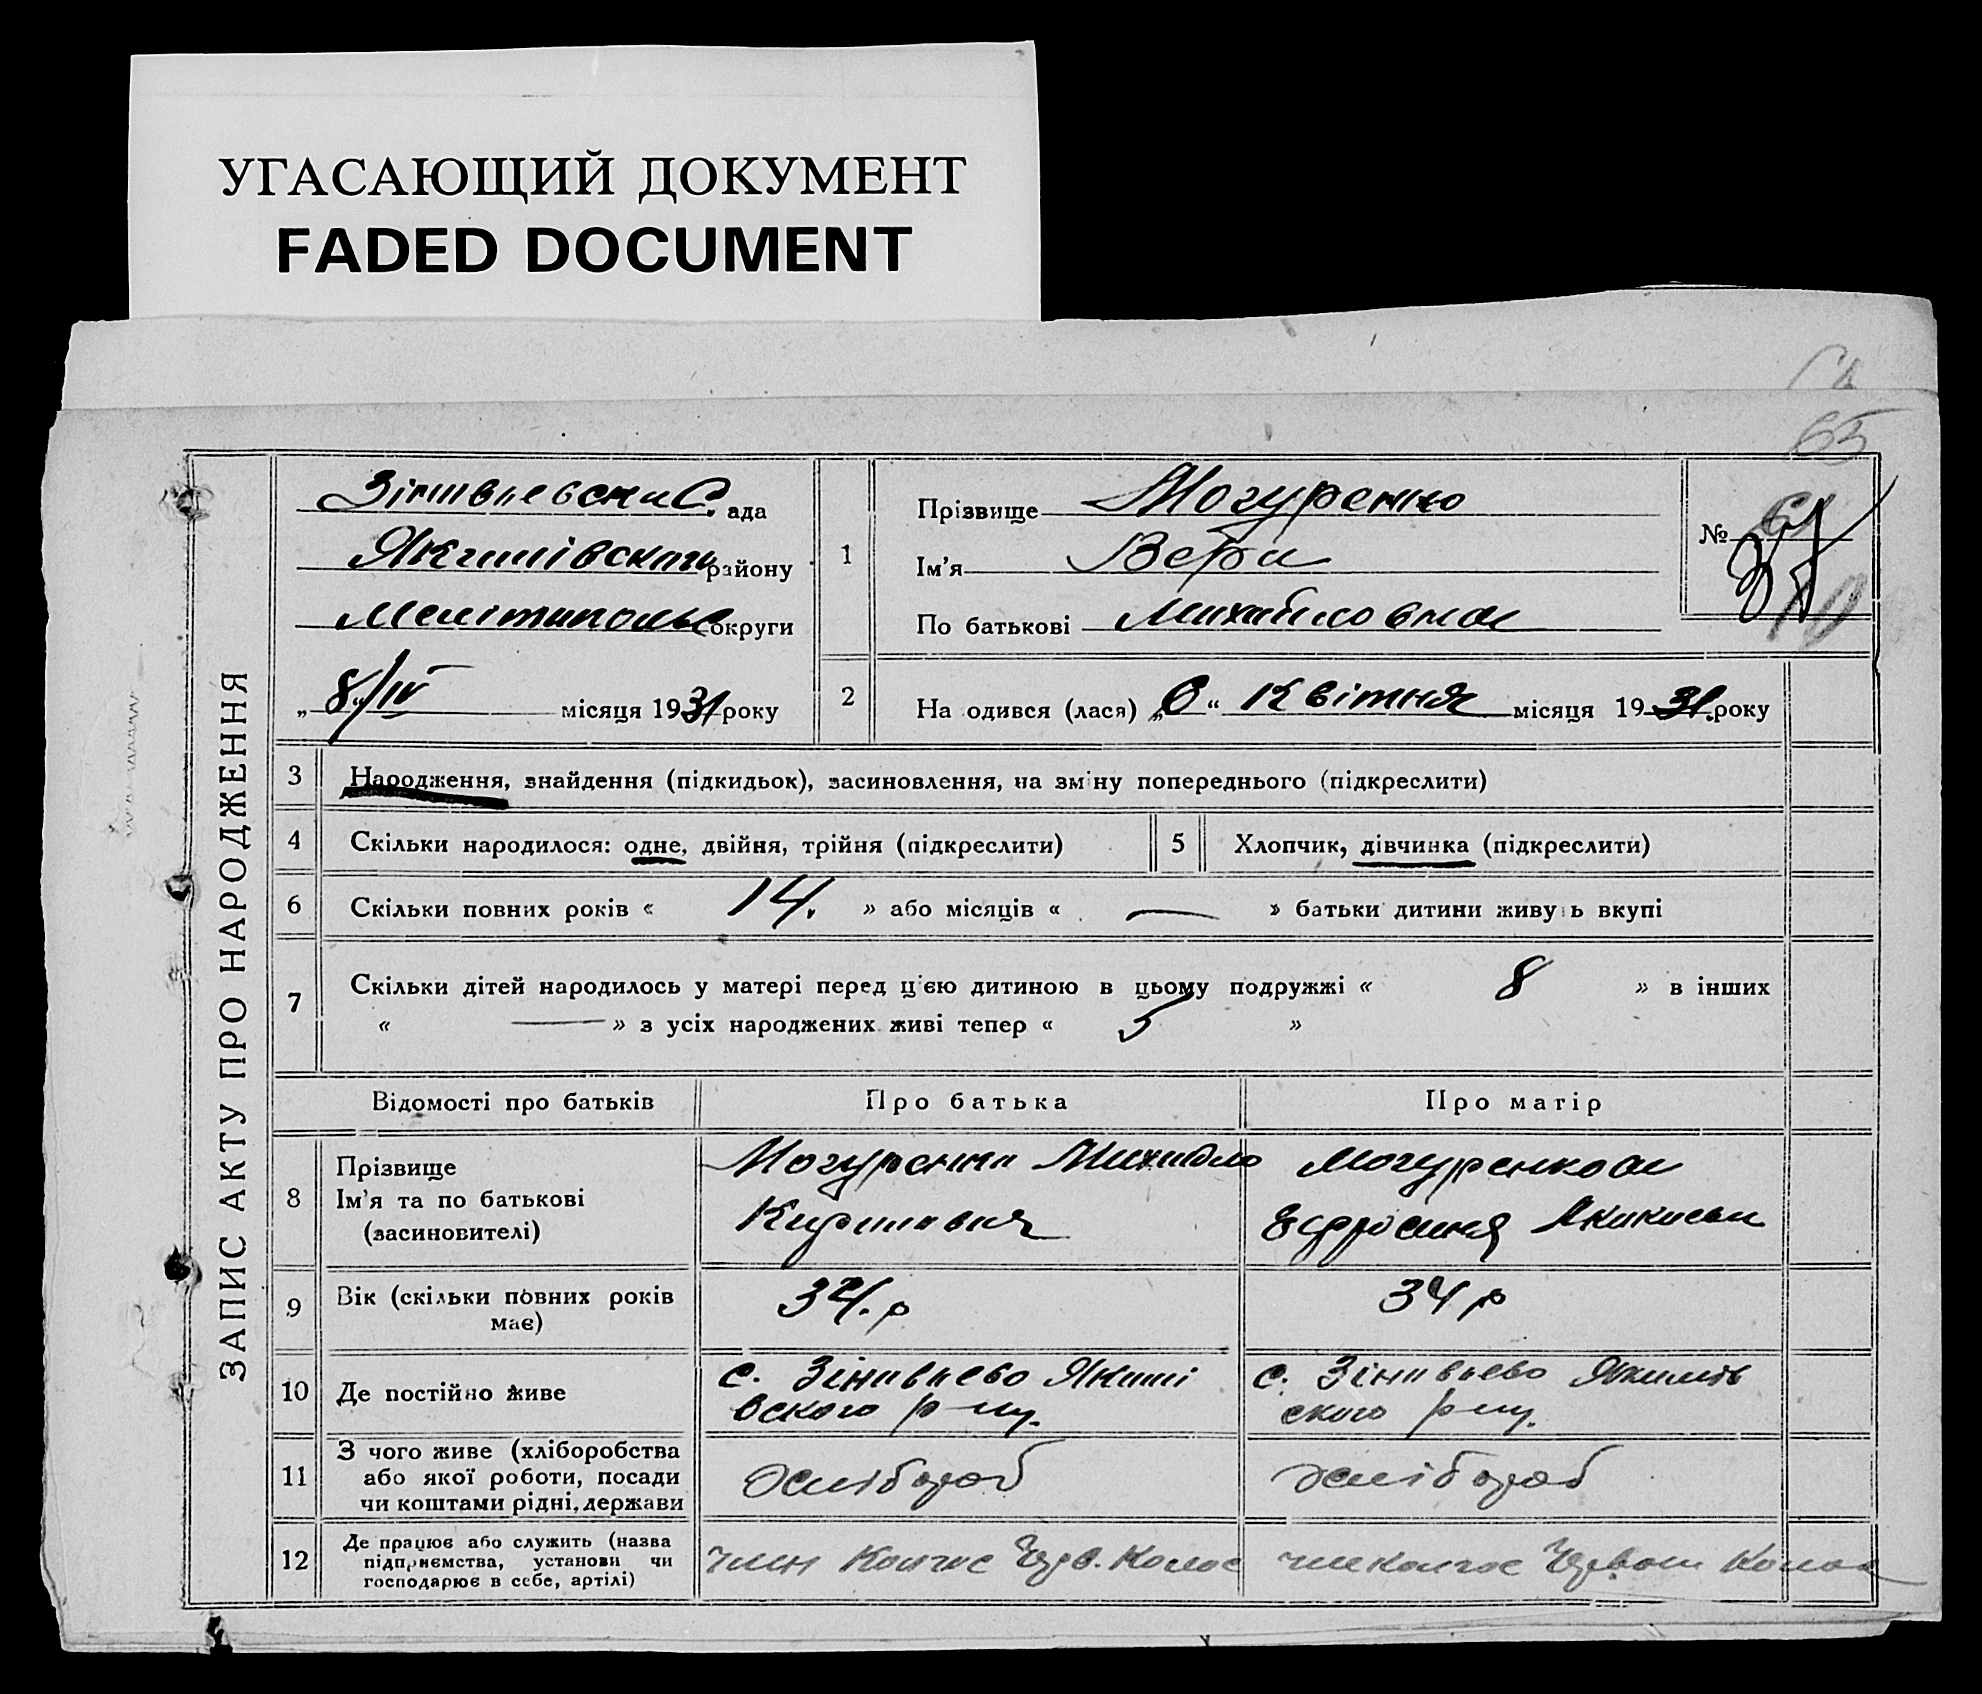 УГАСАЮЩИЙ ДОКУМЕНТ
FADED DOCUMENT
65
ЗАПИС АКТУ ПРО НАРОДЖЕННЯ
Зінивьевска С. ада
Якимівского району
Мелітипольс округи
„8/IV“ місяця 1931 року
1
Прізвище Могуренко
Ім'я Вера
По батькові Михайловна
№
2
На одився (лася) „6“ Квітня місяця 1931. року
3 Народження, знайдення (підкидьок), засиновлення, на зміну попереднього (підкреслити)
4 Скільки народилося: одне, двійня, трійня (підкреслити) 5 Хлопчик, дівчинка (підкреслити)
6 Скільки повних років « 14. » або місяців « — » батьки дитини живуть вкупі
7 Скільки дітей народилось у матері перед цією дитиною в цьому подружжі « 8 » в інших
« — » з усіх народжених живі тепер « 5 »
Відомості про батьків Про батька Про матір
8 Прізвище
Ім'я та по батькові
(засиновителі)
Могуренко Михайло
Кирилович
Могуренкоа
Ефросиня
9 Вік (скільки повних років
має)
34. р
34 р
10 Де постійно живе
с. Зінивьево Якимі
вского р-ну.
с. Зінивьево Якимів
ского р-ну.
11 З чого живе (хліборобства
або якої роботи, посади
чи коштами рідні, держави
хлібороб
хлібороб
12 Де працює або служить (назва
підприємства, установи чи
господарює в себе, артілі)
член Колгос Черв. Колос
член колгос Червон Колос